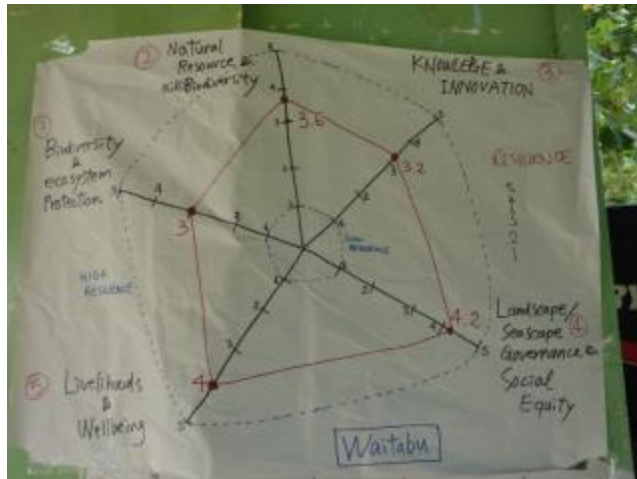 ② Natural
Resource &
Biodiversity
KNOWLEDGE &
INNOVATION
③
①
Biodiversity
&
ecosystem
Protection
3.6
3.2
RESILIENCE
5
4
3
2
1
3
HIGH
RESILIENCE
LOW
RESILIENCE
4.2
Landscape/
Seascape ④
Governance &
Social
Equity
4
⑤ Livelihoods
&
Wellbeing
Waitabu